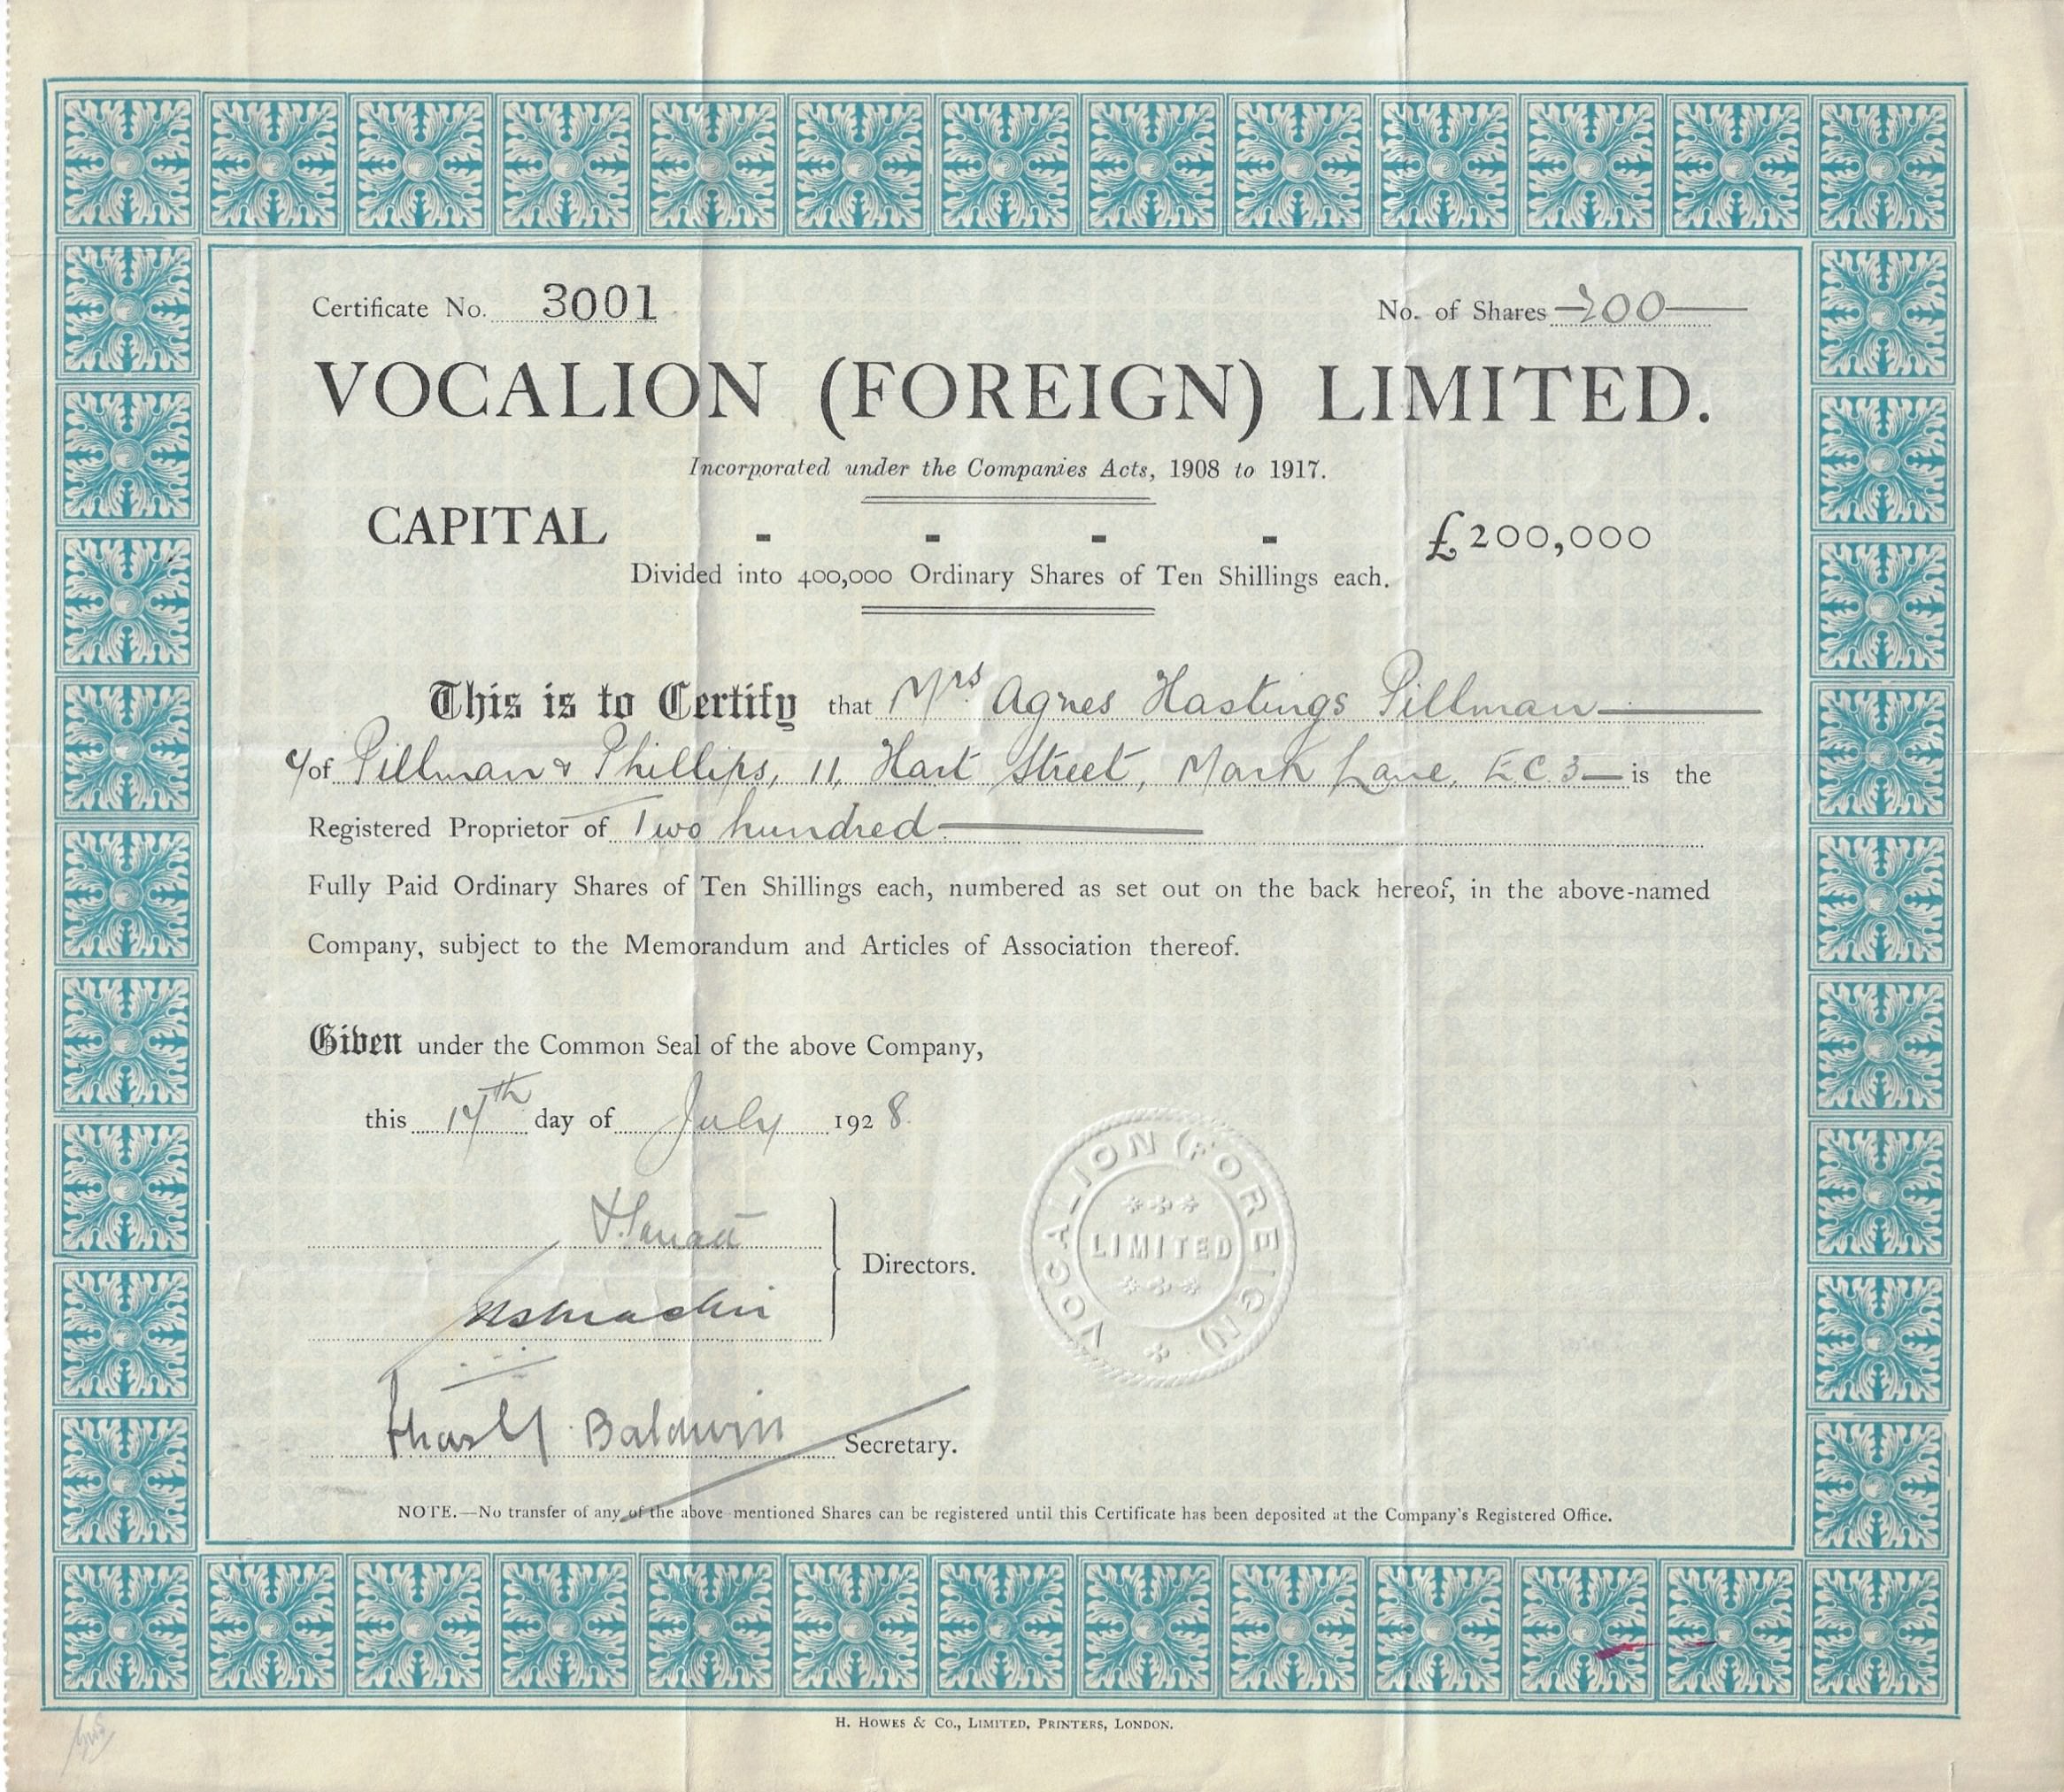 Certificate No. 3001 No. of Shares 200
VOCALION (FOREIGN) LIMITED.
Incorporated under the Companies Acts, 1908 to 1917.
CAPITAL - - - - £200,000
Divided into 400,000 Ordinary Shares of Ten Shillings each.
This is to Certify that Mrs. Agnes Hastings Pillman
c/of Pillman & Phillips, 11, Hart Street, Mark Lane, E.C.3 is the
Registered Proprietor of Two hundred
Fully Paid Ordinary Shares of Ten Shillings each, numbered as set out on the back hereof, in the above-named
Company, subject to the Memorandum and Articles of Association thereof.
Given under the Common Seal of the above Company,
this 17th day of July 1928
Directors.
VOCALION (FOREIGN)
LIMITED
Baldwin Secretary.
NOTE.—No transfer of any of the above mentioned Shares can be registered until this Certificate has been deposited at the Company's Registered Office.
H. HOWES & CO., LIMITED, PRINTERS, LONDON.